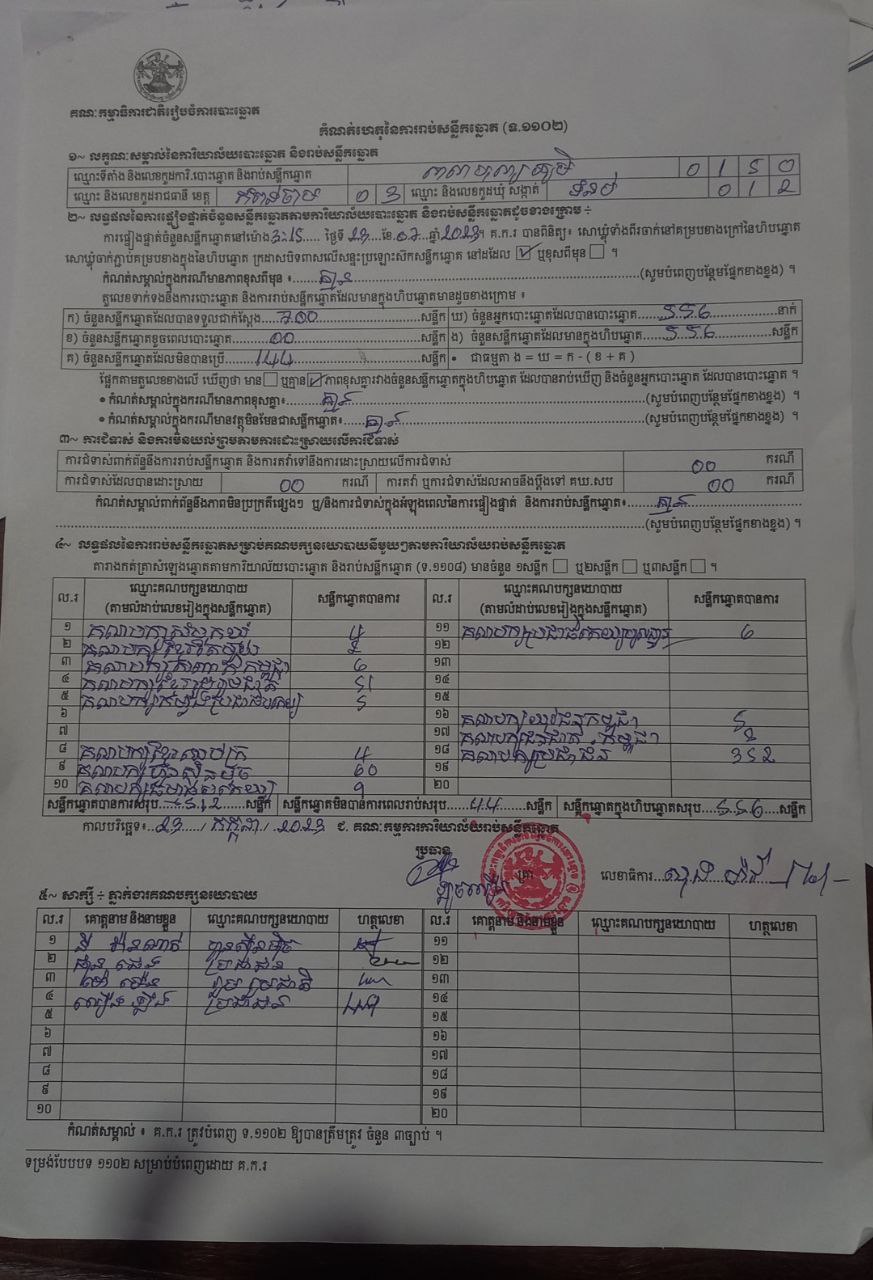 គណៈកម្មាធិការជាតិរៀបចំការបោះឆ្នោត
កំណត់ហេតុនៃការរាប់សន្លឹកឆ្នោត (ទ.១១០២)
១~ លក្ខណៈសម្គាល់នៃការិយាល័យបោះឆ្នោត និងរាប់សន្លឹកឆ្នោត
ឈ្មោះទីតាំង និងលេខកូដការិ.បោះឆ្នោត និងរាប់សន្លឹកឆ្នោត 0 1 5 0
ឈ្មោះ និងលេខកូដរាជធានី ខេត្ត កំពង់ចាម 0 3 ឈ្មោះ និងលេខកូដឃុំ សង្កាត់ 0 1 2
២~ លទ្ធផលនៃការផ្ទៀងផ្ទាត់ចំនួនសន្លឹកឆ្នោតតាមការិយាល័យបោះឆ្នោត និងរាប់សន្លឹកឆ្នោតដូចខាងក្រោម ÷
ការផ្ទៀងផ្ទាត់ចំនួនសន្លឹកឆ្នោតនៅម៉ោង 3:15 ថ្ងៃទី 23 ខែ 07 ឆ្នាំ 2023។ គ.ក.រ បានពិនិត្យ៖ សោឃ្លុំទាំងពីរចាក់នៅគម្របខាងក្រៅនៃហិបឆ្នោត
សោឃ្លុំចាក់ភ្ជាប់គម្របខាងក្នុងនៃហិបឆ្នោត ក្រដាសបិទពាសលើសន្ទះប្រឡោះសឹកសន្លឹកឆ្នោត នៅដដែល ☑ ឬខុសពីមុន ☐ ។
កំណត់សម្គាល់ក្នុងករណីមានភាពខុសពីមុន ៖ គ្មាន (សូមបំពេញបន្ថែមផ្នែកខាងខ្នង) ។
តួលេខទាក់ទងនឹងការបោះឆ្នោត និងការរាប់សន្លឹកឆ្នោតដែលមានក្នុងហិបឆ្នោតមានដូចខាងក្រោម ៖
ក) ចំនួនសន្លឹកឆ្នោតដែលបានទទួលជាក់ស្តែង 700 សន្លឹក ឃ) ចំនួនអ្នកបោះឆ្នោតដែលបានបោះឆ្នោត 556 នាក់
ខ) ចំនួនសន្លឹកឆ្នោតខូចពេលបោះឆ្នោត 00 សន្លឹក ង) ចំនួនសន្លឹកឆ្នោតដែលមានក្នុងហិបឆ្នោត 556 សន្លឹក
គ) ចំនួនសន្លឹកឆ្នោតដែលមិនបានប្រើ 144 សន្លឹក • ជាធម្មតា ង = ឃ = ក - ( ខ + គ )
ផ្អែកតាមតួលេខខាងលើ ឃើញថា មាន ☐ ឬគ្មាន ☑ ភាពខុសគ្នារវាងចំនួនសន្លឹកឆ្នោតក្នុងហិបឆ្នោត ដែលបានរាប់ឃើញ និងចំនួនអ្នកបោះឆ្នោត ដែលបានបោះឆ្នោត ។
• កំណត់សម្គាល់ក្នុងករណីមានភាពខុសគ្នា៖ គ្មាន (សូមបំពេញបន្ថែមផ្នែកខាងខ្នង) ។
• កំណត់សម្គាល់ក្នុងករណីមានវត្ថុមិនមែនជាសន្លឹកឆ្នោត៖ គ្មាន (សូមបំពេញបន្ថែមផ្នែកខាងខ្នង) ។
៣~ ការជំទាស់ និងការមិនយល់ព្រមតាមការដោះស្រាយលើការជំទាស់
ការជំទាស់ពាក់ព័ន្ធនឹងការរាប់សន្លឹកឆ្នោត និងការតវ៉ាទៅនឹងការដោះស្រាយលើការជំទាស់ 00 ករណី
ការជំទាស់ដែលបានដោះស្រាយ 00 ករណី ការតវ៉ា ឬការជំទាស់ដែលអាចនឹងប្តឹងទៅ គឃ.សប 00 ករណី
កំណត់សម្គាល់ពាក់ព័ន្ធនឹងភាពមិនប្រក្រតីផ្សេងៗ ឬ/និងការជំទាស់ក្នុងអំឡុងពេលនៃការផ្ទៀងផ្ទាត់ និងការរាប់សន្លឹកឆ្នោត៖ គ្មាន
(សូមបំពេញបន្ថែមផ្នែកខាងខ្នង) ។
៤~ លទ្ធផលនៃការរាប់សន្លឹកឆ្នោតសម្រាប់គណបក្សនយោបាយនីមួយៗតាមការិយាល័យរាប់សន្លឹកឆ្នោត
តារាងកត់ត្រាសំឡេងឆ្នោតតាមការិយាល័យបោះឆ្នោត និងរាប់សន្លឹកឆ្នោត (ទ.១១០៨) មានចំនួន ១សន្លឹក ☐ ឬ២សន្លឹក ☐ ឬ៣សន្លឹក ☐ ។
ល.រ ឈ្មោះគណបក្សនយោបាយ (តាមលំដាប់លេខរៀងក្នុងសន្លឹកឆ្នោត) សន្លឹកឆ្នោតបានការ ល.រ ឈ្មោះគណបក្សនយោបាយ (តាមលំដាប់លេខរៀងក្នុងសន្លឹកឆ្នោត) សន្លឹកឆ្នោតបានការ
១ គណបក្ស 4 ១១ គណបក្សប្រជាធិបតេយ្យមូលដ្ឋាន 6
២ គណបក្ស ១២
៣ គណបក្ស កម្ពុជា 6 ១៣
៤ គណបក្សខ្មែររួបរួមជាតិ 51 ១៤
៥ គណបក្សកម្លាំងប្រជាធិបតេយ្យ 5 ១៥
៦ ១៦ គណបក្សយុវជនកម្ពុជា 5
៧ ១៧ គណបក្សជនជាតិ កម្ពុជា
៨ គណបក្សខ្មែរឈប់ក្រ 4 ១៨ គណបក្សប្រជាជន 352
៩ គណបក្សហ៊្វុនស៊ិនប៉ិច 60 ១៩
១០ គណបក្ស ២០
សន្លឹកឆ្នោតបានការសរុប 512 សន្លឹក សន្លឹកឆ្នោតមិនបានការពេលរាប់សរុប 44 សន្លឹក សន្លឹកឆ្នោតក្នុងហិបឆ្នោតសរុប 556 សន្លឹក
កាលបរិច្ឆេទ៖ 23 / កក្កដា / 2023 ជ. គណៈកម្មការការិយាល័យរាប់សន្លឹកឆ្នោត
ប្រធាន
ត្រា លេខាធិការ
៥~ សាក្សី ÷ ភ្នាក់ងារគណបក្សនយោបាយ
ល.រ គោត្តនាម និងនាមខ្លួន ឈ្មោះគណបក្សនយោបាយ ហត្ថលេខា ល.រ គោត្តនាម និងនាមខ្លួន ឈ្មោះគណបក្សនយោបាយ ហត្ថលេខា
១ ហ៊្វុនស៊ិនប៉ិច ១១
២ ប្រជាជន ១២
៣ រួបរួមជាតិ ១៣
៤ ប្រជាជន ១៤
៥ ១៥
៦ ១៦
៧ ១៧
៨ ១៨
៩ ១៩
១០ ២០
កំណត់សម្គាល់ ៖ គ.ក.រ ត្រូវបំពេញ ទ.១១០២ ឱ្យបានត្រឹមត្រូវ ចំនួន ៣ច្បាប់ ។
ទម្រង់បែបបទ ១១០២ សម្រាប់បំពេញដោយ គ.ក.រ